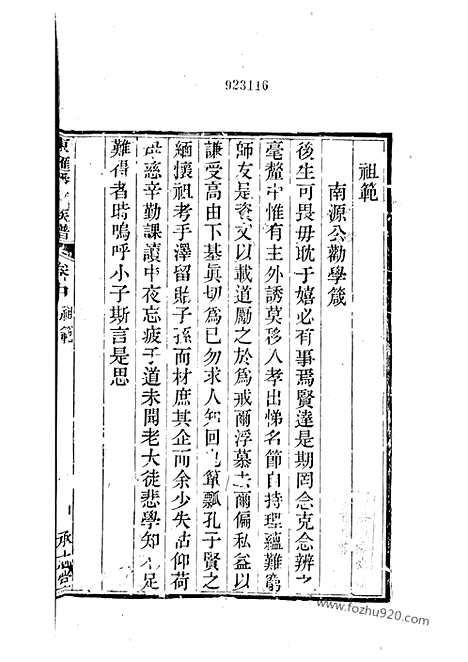 923116
祖範
南源公勸學箴
後生可畏毋耽于嬉必有事焉賢達是期罔念克念辨之
毫釐中惟有主外誘莫移入孝出悌名節自持理蘊難窮
師友是資文以載道勵之於為戒爾浮慕去爾偏私益以
謙受高由下基真切為已勿求人知回也簞瓢孔子賢之
緬懷祖考手澤留貽子孫而材庶其企而余少失怙仰荷
母慈辛勤課讀中夜忘疲于道未聞老大徒悲學知不足
難得者時嗚呼小子斯言是思
族譜
卷 祖範
www.fozhu920.com